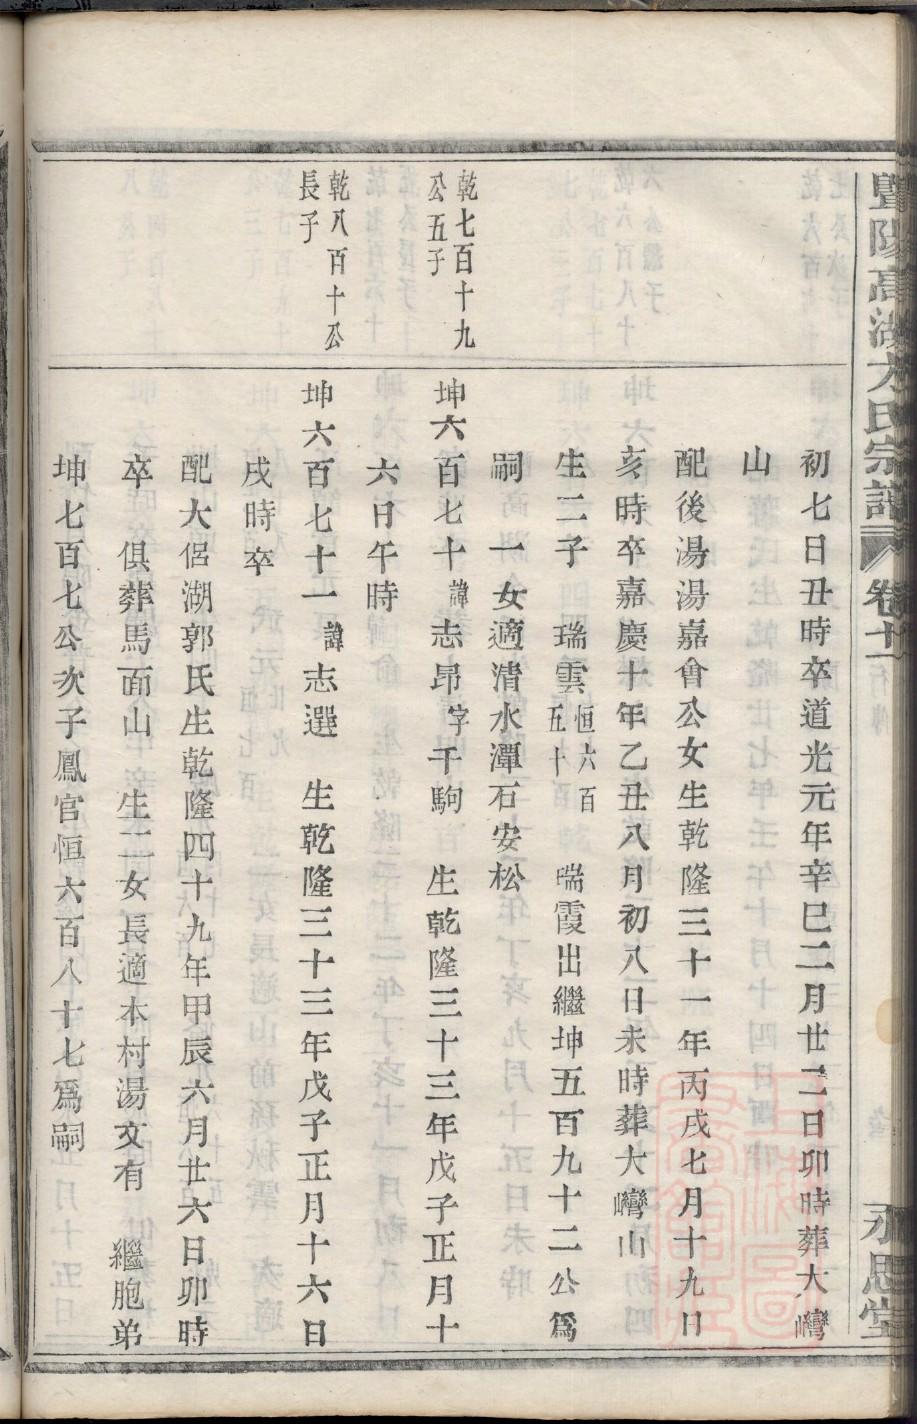 暨陽高湖方氏宗譜 卷十一 永思堂
初七日丑時卒道光元年辛巳二月廿二日卯時葬大巒
山
配後湯湯嘉會公女生乾隆三十一年丙戌七月十九日
亥時卒嘉慶十年乙丑八月初八日未時葬大巒山
生二子 瑞雲恒六百五十 瑞霞出繼坤五百九十二公爲
嗣 一女適清水潭石安松
乾七百十九
公五子
坤六百七十諱志昂字千駒 生乾隆三十三年戊子正月十
六日午時
乾八百十公
長子
坤六百七十一諱志選 生乾隆三十三年戊子正月十六日
戌時卒
配大侶湖郭氏生乾隆四十九年甲辰六月廿六日卯時
卒 俱葬馬面山 生二女長適本村湯文有 繼胞弟
坤七百七公次子鳳官恒六百八十七爲嗣